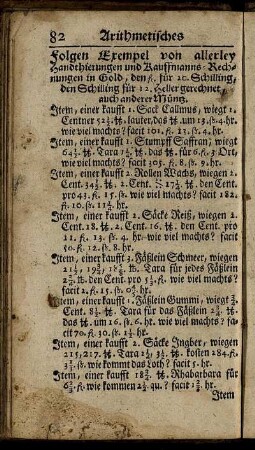 82 Arithmetisches
Folgen Exempel von allerley
Handthierungen und Kauffmanns-Rech-
nungen in Gold, den fl. für 20. Schilling,
den Schilling für 12. Heller gerechnet,
auch anderer Müntz.
Item, einer kaufft 1. Sack Calimus, wiegt 1.
Centner 52½. ℔. lauter, das ℔. um 13. ß. 4. hr.
wie viel machts? facit 101. fl. 13. ß. 4. hr.
Item, einer kaufft 1. Stumpff Saffran, wiegt
64¾. ℔. Tara 7½. ℔. das ℔. für 6. fl. 3. Ort,
wie viel machts? facit 305. fl. 8. ß. 9. hr.
Item, einer kaufft 2. Rollen Wachs, wiegen 2.
Cent. 34½. ℔. 2. Cent. 17½. ℔. den Cent.
pro 43. fl. 15. ß. wie viel machts? facit 182.
fl. 10. ß. hr.
Item, einer kaufft 2. Säcke Reiß, wiegen 2.
Cent. 18. ℔. 2. Cent. 16. ℔. den Cent. pro
11. fl. 13. ß. 4. hr. wie viel machts? facit
50. fl. 12. ß. 8. hr.
Item, einer kaufft 3. Fäßlein Schmeer, wiegen
℔. Tara für jedes Fäßlein
℔. den Cent pro fl. wie viel machts?
facit 2. fl. 15. ß. hr.
Item, einer kaufft 1. Fäßlein Gummi, wiegt
Cent. ℔. Tara für das Fäßlein ℔.
das ℔. um 16. ß. 6. hr. wie viel machts? fa-
cit 70. fl. 30. ß. hr.
Item, einer kaufft 2. Säcke Ingber, wiegen
215, 217. ℔. Tara ℔. kosten 284. fl.
ß. wie kommt das Loth? facit 5. hr.
Item, einer kaufft ℔. Rhabarbara für
fl. wie kommen qu.? facit hr.
Item